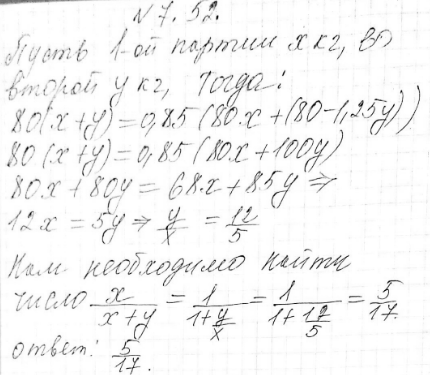 N 7. 52.
Пусть 1-ой партии x кг, во
второй y кг, тогда:
80(x+y)=0,85(80x+(80-1,25y))
80(x+y)=0,85(80x+100y)
80x+80y=68x+85y ⇒
12x=5y ⇒ y/x = 12/5
Нам необходимо найти
число x/(x+y) = 1/(1+y/x) = 1/(1+12/5) = 5/17.
ответ: 5/17.